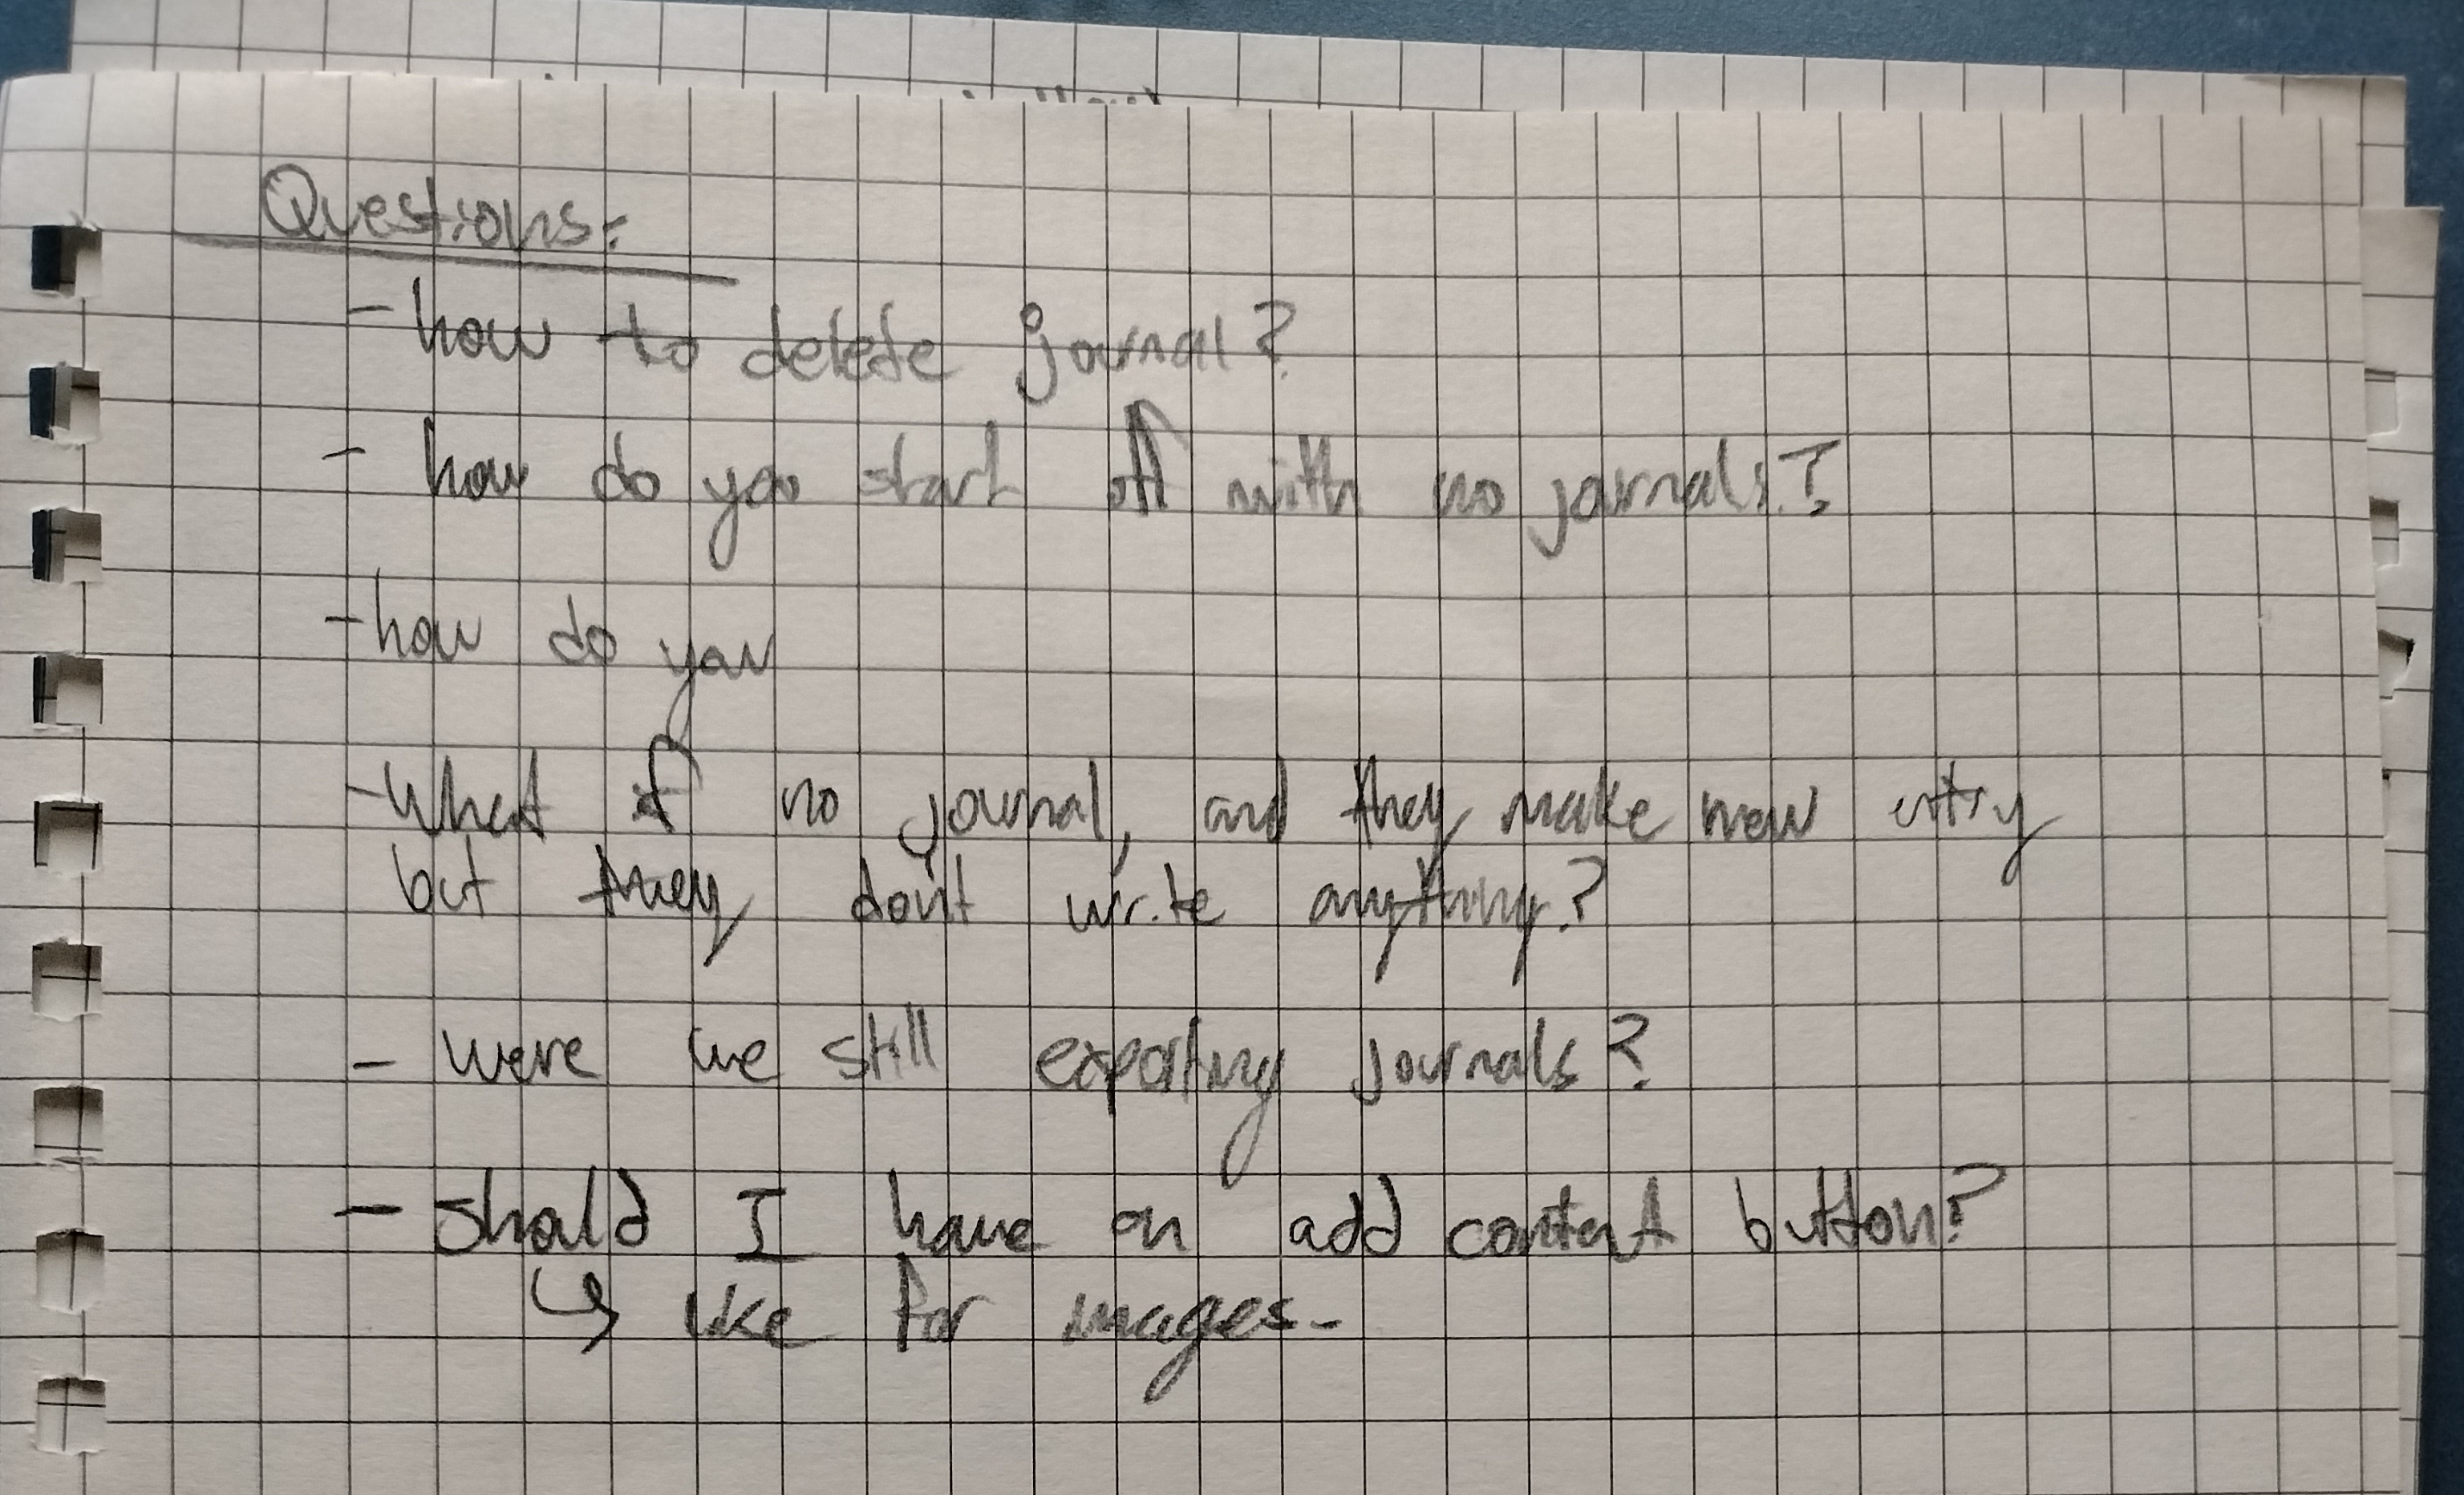 Questions:
- how to delete journal?
- how do you start off with no journals?
- how do you
- What if no journal, and they make new entry
but they don't write anything?
- were we still exporting journals?
- should I have an add content button?
↳ like for images-